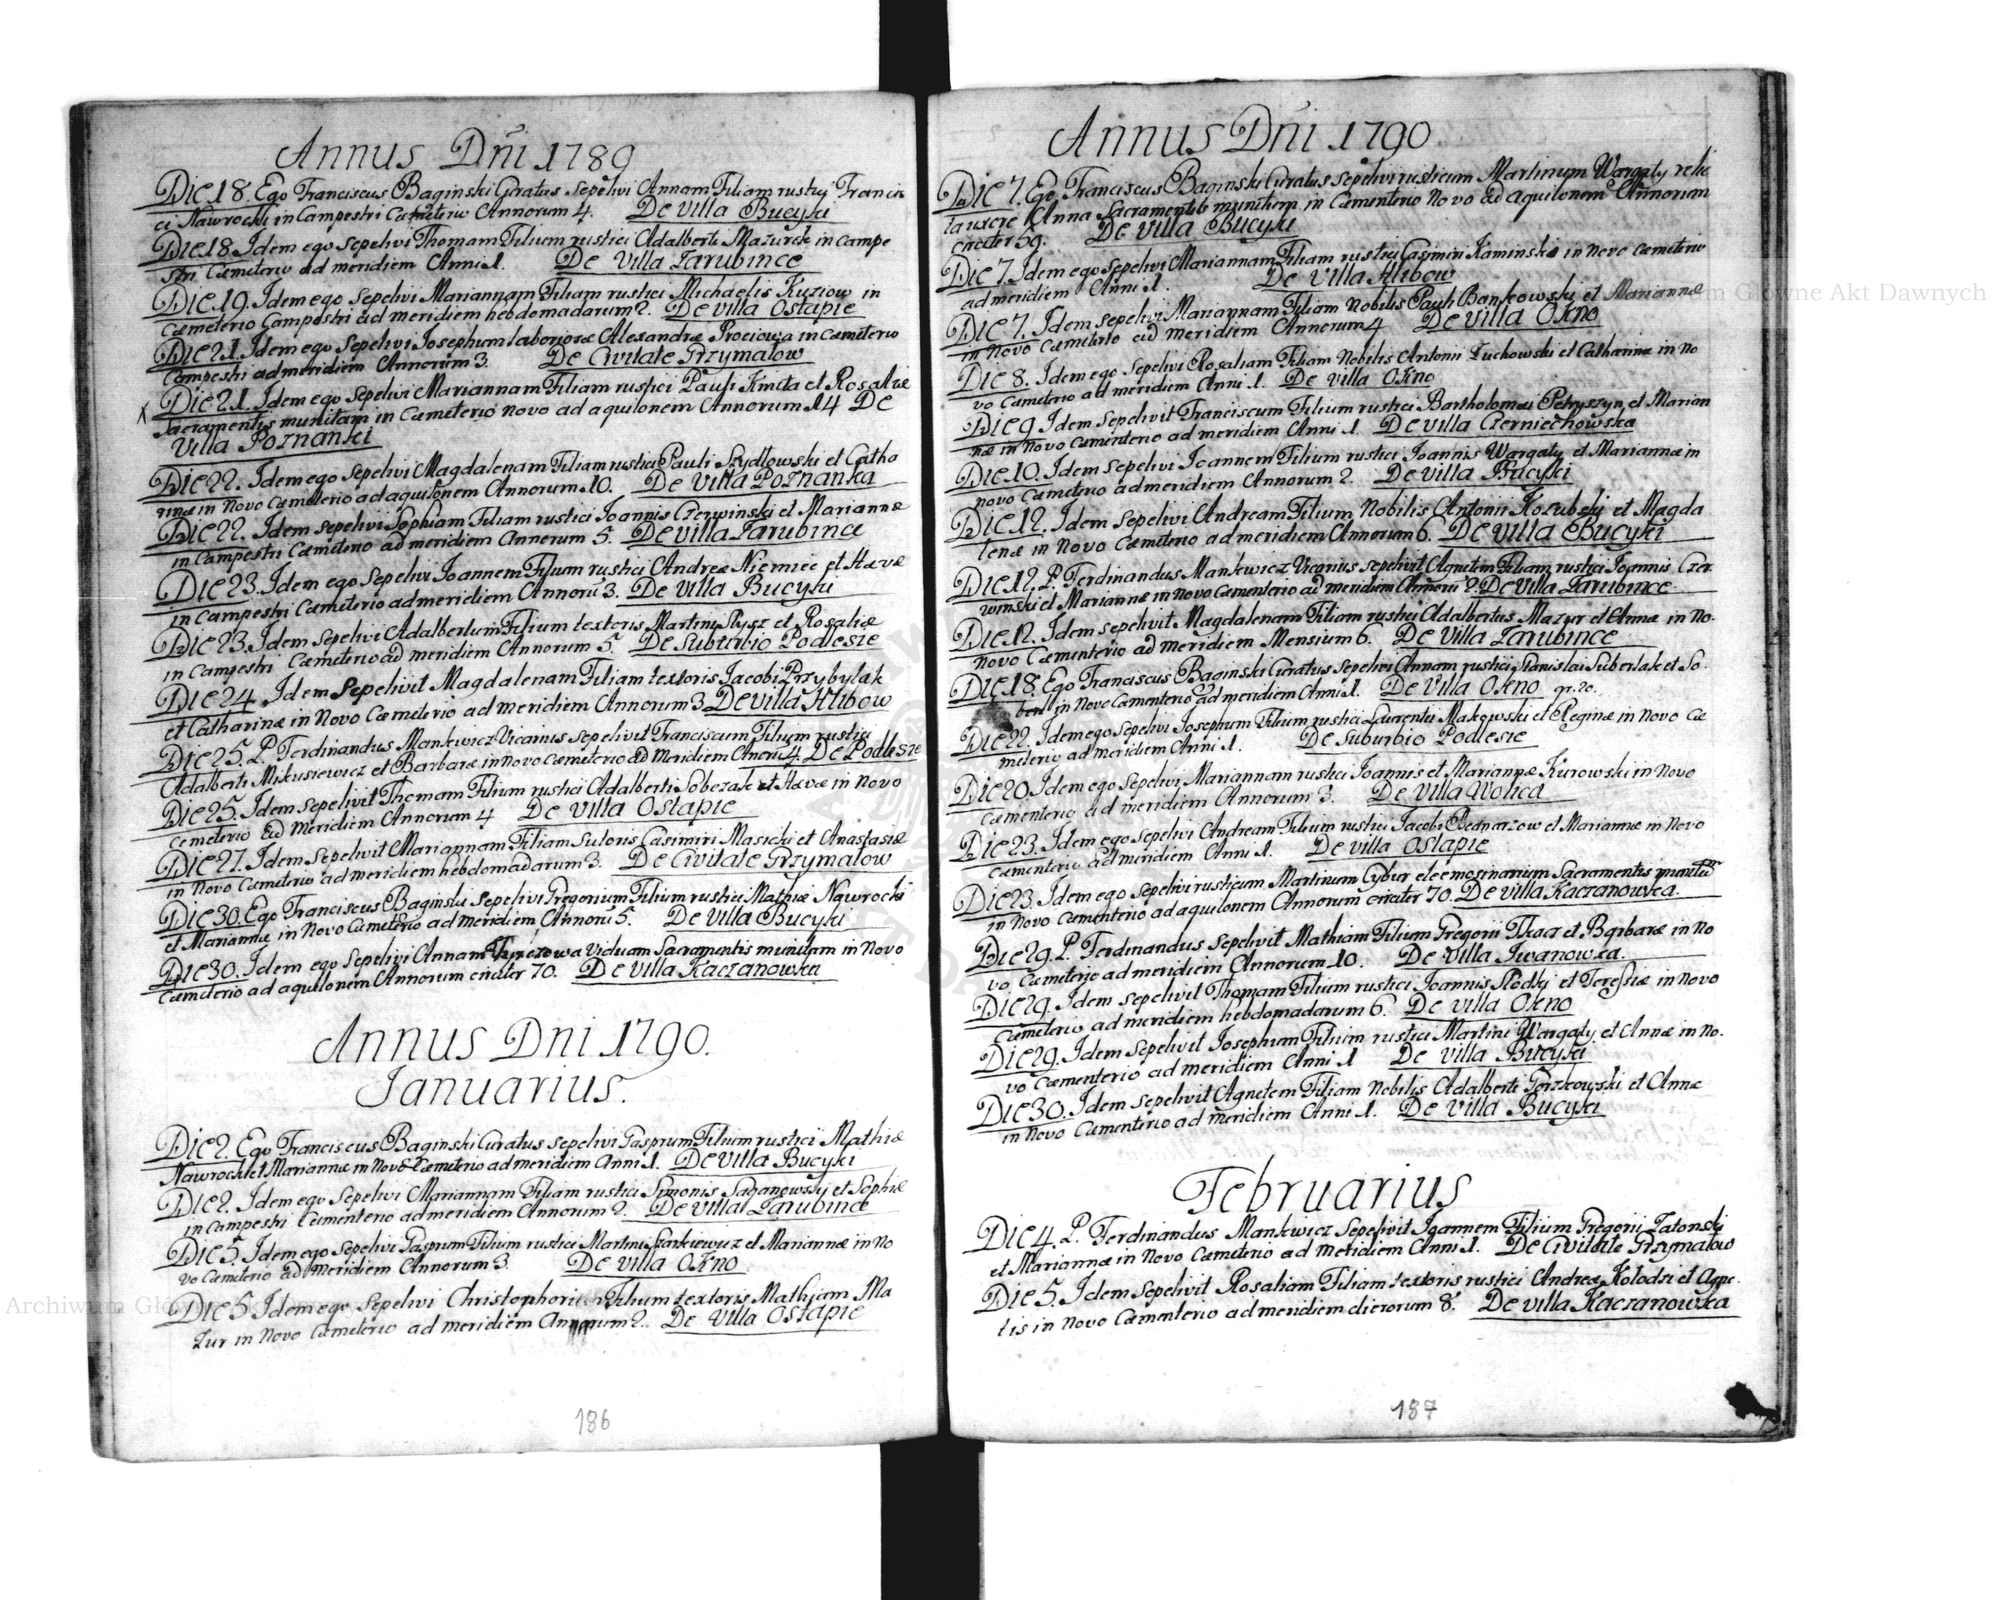 Annus Dni 1789
Die 18. Ego Franciscus Baginski Curatus sepelivi Annam Filiam rustici Francis
ci Nawrocki in Campestri Cæmeterio Annorum 4. De Villa Bucyki
Die 18. Idem ego sepelivi Thomam Filium rustici Adalberti Mazurek in campe
stri Cæmeterio ad meridiem Anni 1. De Villa Zarubince
Die 19. Idem ego sepelivi Mariannam Filiam rustici Michaelis Kuziow in
Cæmeterio Campestri ad meridiem hebdomadarum 2. De Villa Ostapie
Die 21. Idem ego sepelivi Josephum laboriosæ Alexandræ Prociowa in cæmeterio
Campestri ad meridiem Annorum 3. De Civitate Grzymalow
Die 21. Idem ego sepelivi Mariannam Filiam rustici Pauli Kmita et Rosaliæ
Sacramentis munitam in Cæmeterio novo ad aquilonem Annorum 14 De
Villa Poznanki
Die 22. Idem ego sepelivi Magdalenam Filiam rustici Pauli Szydlowski et Catha
rinæ in Novo Cæmeterio ad aquilonem Annorum 10. De Villa Poznanka
Die 22. Idem sepelivi Sophiam Filiam rustici Joannis Czerwinski et Mariannæ
in Campestri Cæmeterio ad meridiem Annorum 5. De Villa Zarubince
Die 23. Idem ego sepelivi Joannem Filium rustici Andreæ Niemiec et Hævæ
in Campestri Cæmeterio ad meridiem Annorũ 3. De Villa Bucyki
Die 23. Idem sepelivi Adalbertum Filium textoris Martini Rysz et Rosaliæ
in Campestri Cæmeterio ad meridiem Annorum 5. De Suburbio Podlesie
Die 24. Idem Sepelivit Magdalenam Filiam textoris Jacobi Przybylak
et Catharinæ in Novo Cæmeterio ad meridiem Annorum 3 De Villa Hlibow
Die 25. P. Ferdinandus Mankwicz Vicarius sepelivit Franciscum Filium rustici
Adalberti Mikusiewicz et Barbaræ in Novo cæmeterio ad Meridiem Anorũ 4. De Podlesie
Die 25. Idem sepelivit Thomam Filium rustici Adalberti Sobczak et Hævæ in Novo
cæmeterio ad Meridiem Annorum 4 De Villa Ostapie
Die 27. Idem Sepelivit Mariannam Filiam Sutoris Casimiri Masicki et Anastasiæ
in Novo Cæmeterio ad meridiem hebdomadarum 3. De Civitate Grzymalow
Die 30. Ego Franciscus Baginski sepelivi Gregorium Filium rustici Mathiæ Nawrocki
et Mariannæ in Novo Cæmeterio ad meridiem Annorũ 5. De Villa Bucyki
Die 30. Idem ego Sepelivi Annam Viduam Sacramentis munitam in Novo
Cæmeterio ad aquilonem Annorum circiter 70. De Villa Kaczanowka
Annus Dni 1790.
Januarius.
Die 2. Ego Franciscus Baginski Curatus sepelivi Gasprum Filium rustici Mathiæ
Nawrocki et Mariannæ in Novo Cæmeterio ad meridiem Anni 1. De Villa Bucyki
Die 2. Idem ego Sepelivi Mariannam Filiam rustici Simonis Saganowski et Sophiæ
in Campestri Cæmenterio ad meridiem Annorum 2. De Villa Zarubince
Die 5. Idem ego sepelivi Gasprum Filium rustici Martini Szarkiewicz et Mariannæ in No
vo Cæmeterio ad Meridiem Annorum 3. De villa Okno
Die 5. Idem ego Sepelivi Christophorum Filium textoris Mathiam Ma
zur in Novo Cæmeterio ad meridiem Annorum 2. De Villa Ostapie
186
Annus Dni 1790
Die 7. Ego Franciscus Baginski Curatus sepelivi rusticum Martinum Wargaty reli
ta uxore Anna Sacramentis munitum in Cæmenterio Novo ad aquilonem Annorum
circiter 59. De Villa Bucyki
Die 7. Idem ego Sepelivi Mariannam Filiam rustici Casimiri Kaminski in Novo Cæmeterio
ad meridiem Anni 1. De Villa Hlibow
Die 7. Idem Sepelivi Mariannam Filiam Nobilis Pauli Bankowski et Mariannæ
in Novo Cæmeterio ad Meridiem Annorum 4 De Villa Okno
Die 8. Idem ego Sepelivi Rosaliam Filiam Nobilis Antonii Zuchowski et Catharinæ in No
vo Cæmeterio ad meridiem Anni 1. De Villa Okno
Die 9. Idem Sepelivit Franciscum Filium rustici Bartholomæi Petryszyn et Marian
næ in Novo Cæmenterio ad meridiem Anni 1. De Villa Czerniechowska
Die 10. Idem Sepelivi Joannem Filium rustici Joannis Wargaty et Mariannæ in
novo Cæmeterio ad meridiem Annorum 2. De Villa Bucyki
Die 12. Idem Sepelivi Andream Filium Nobilis Antonii Kozubski et Magda
lenæ in Novo Cæmeterio ad meridiem Annorum 6. De Villa Bucyki
Die 12. P. Ferdinandus Mankwicz Vicarius sepelivit Agnetem Filiam rustici Joannis Czer
winski et Mariannæ in Novo Cæmenterio ad meridiem Annorũ 2. De Villa Zarubince
Die 12. Idem Sepelivit Magdalenam Filiam rustici Adalbertus Mazur et Annæ in No.
novo Cæmenterio ad meridiem Mensium 6. De Villa Zarubince
Die 18. Ego Franciscus Baginski Curatus Sepelivi Annam rustici Stanislai Suberlak et So.
in Novo Cæmenterio ad meridiem Anni 1. De Villa Okno gr. 20.
Die 22. Idem ego Sepelivi Josephum Filium rustici Laurentii Makowski et Reginæ in Novo Cæ
meterio ad meridiem Anni 1. De Suburbio Podlesie
Die 20. Idem ego Sepelivi Mariannam rustici Joannis et Mariannæ Kurowski in Novo
Cæmenterio ad meridiem Annorum 3. De Villa Wolica
Die 23. Idem ego Sepelivi Andream Filium rustici Jacobi Bednarzow et Mariannæ in Novo
Cæmenterio ad meridiem Anni 1. De Villa Ostapie
Die 23. Idem ego Sepelivi rusticum Martinum Cybur eleemosinarium Sacramentis munitũ
in Novo Cæmenterio ad aquilonem Annorum circiter 70. De Villa Kaczanowka.
Die 29. P. Ferdinandus Sepelivit Mathiam Filium Gregorii Tkacz et Barbaræ in No
vo Cæmeterio ad meridiem Annorum 10. De Villa Iwanowka.
Die 29. Idem Sepelivit Thomam Filium rustici Joannis Slodki et Teressiæ in Novo
Cæmeterio ad meridiem hebdomadarum 6. De Villa Okno
Die 29. Idem Sepelivit Josephum Filium rustici Martini Wargaty et Annæ in No.
vo Cæmenterio ad meridiem Anni 1 De Villa Bucyki
Die 30. Idem Sepelivit Agnetem Filiam Nobilis Adalberti Gorzkowski et Annæ
in Novo Cæmenterio ad meridiem Anni 1. De Villa Bucyki
Februarius
Die 4. P. Ferdinandus Mankwicz Sepelivit Joannem Filium Gregorii Zatonski
et Mariannæ in Novo Cæmeterio ad meridiem Anni 1. De Civitate Grzymalow
Die 5. Idem Sepelivit Rosaliam Filiam textoris rustici Andreæ Kolodzi et Agne.
tis in Novo Cæmenterio ad meridiem dierorum 8. De Villa Kaczanowka
187
Archiwum Główne Akt Dawnych